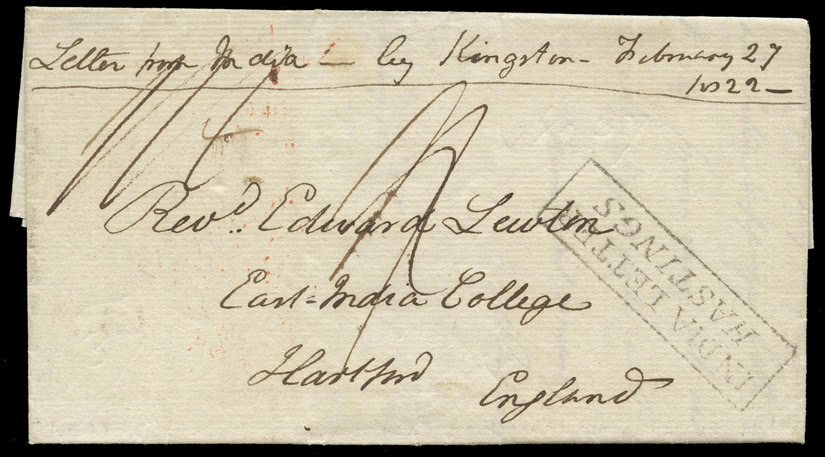 Letter from India — by Kingston — February 27
1822 —
Revd. Edward Lewton
East=India College
Hartford
England
INDIA LETTER
HASTINGS